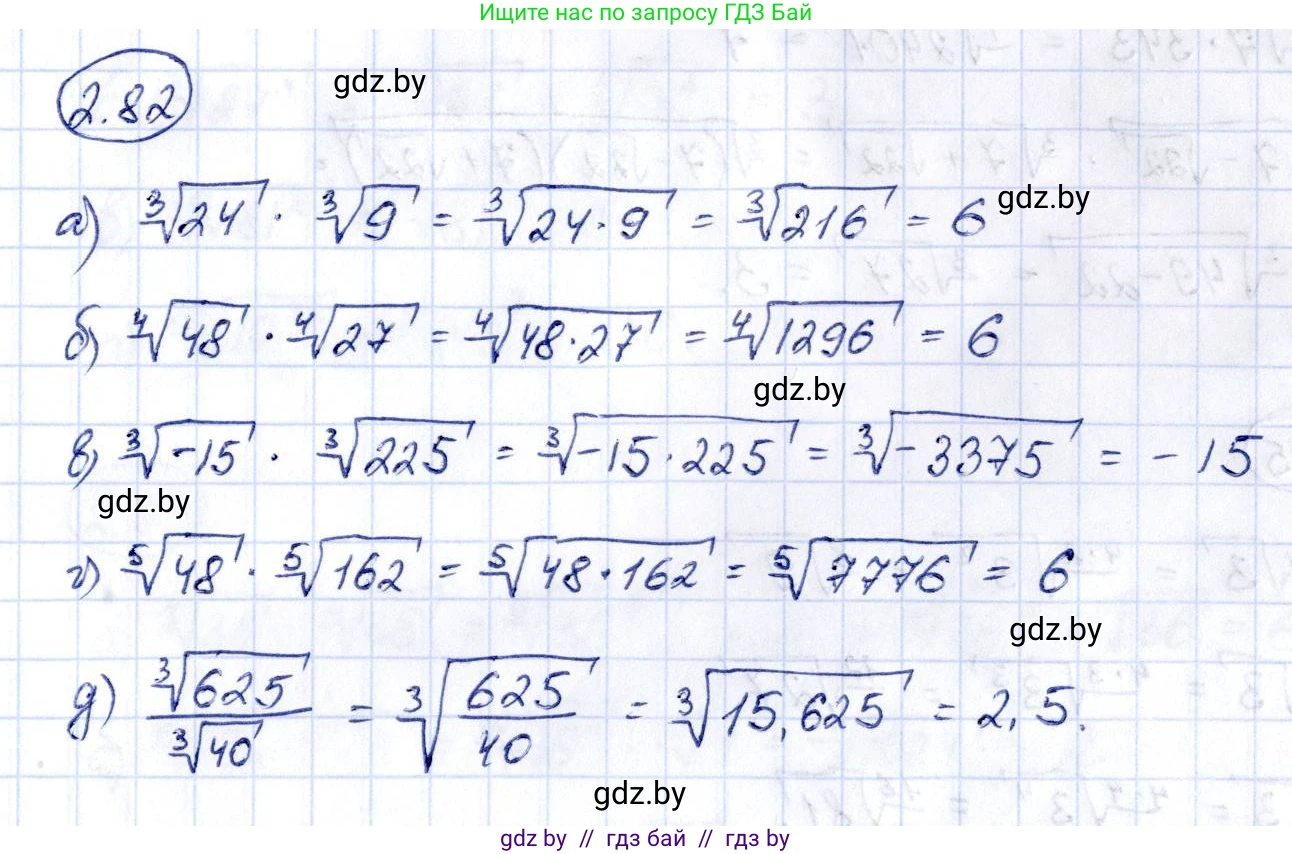 Ищите нас по запросу ГДЗ Бай
2.82
gdz.by
а) ∛24 · ∛9 = ∛(24·9) = ∛216 = 6
gdz.by
б) ∜48 · ∜27 = ∜(48·27) = ∜1296 = 6
gdz.by
в) ∛-15 · ∛225 = ∛(-15·225) = ∛-3375 = -15
gdz.by
г) ⁵√48 · ⁵√162 = ⁵√(48·162) = ⁵√7776 = 6
gdz.by
д) ∛625/∛40 = ∛(625/40) = ∛15,625 = 2,5.
gdz.by
gdz by // гдз бай // гдз by